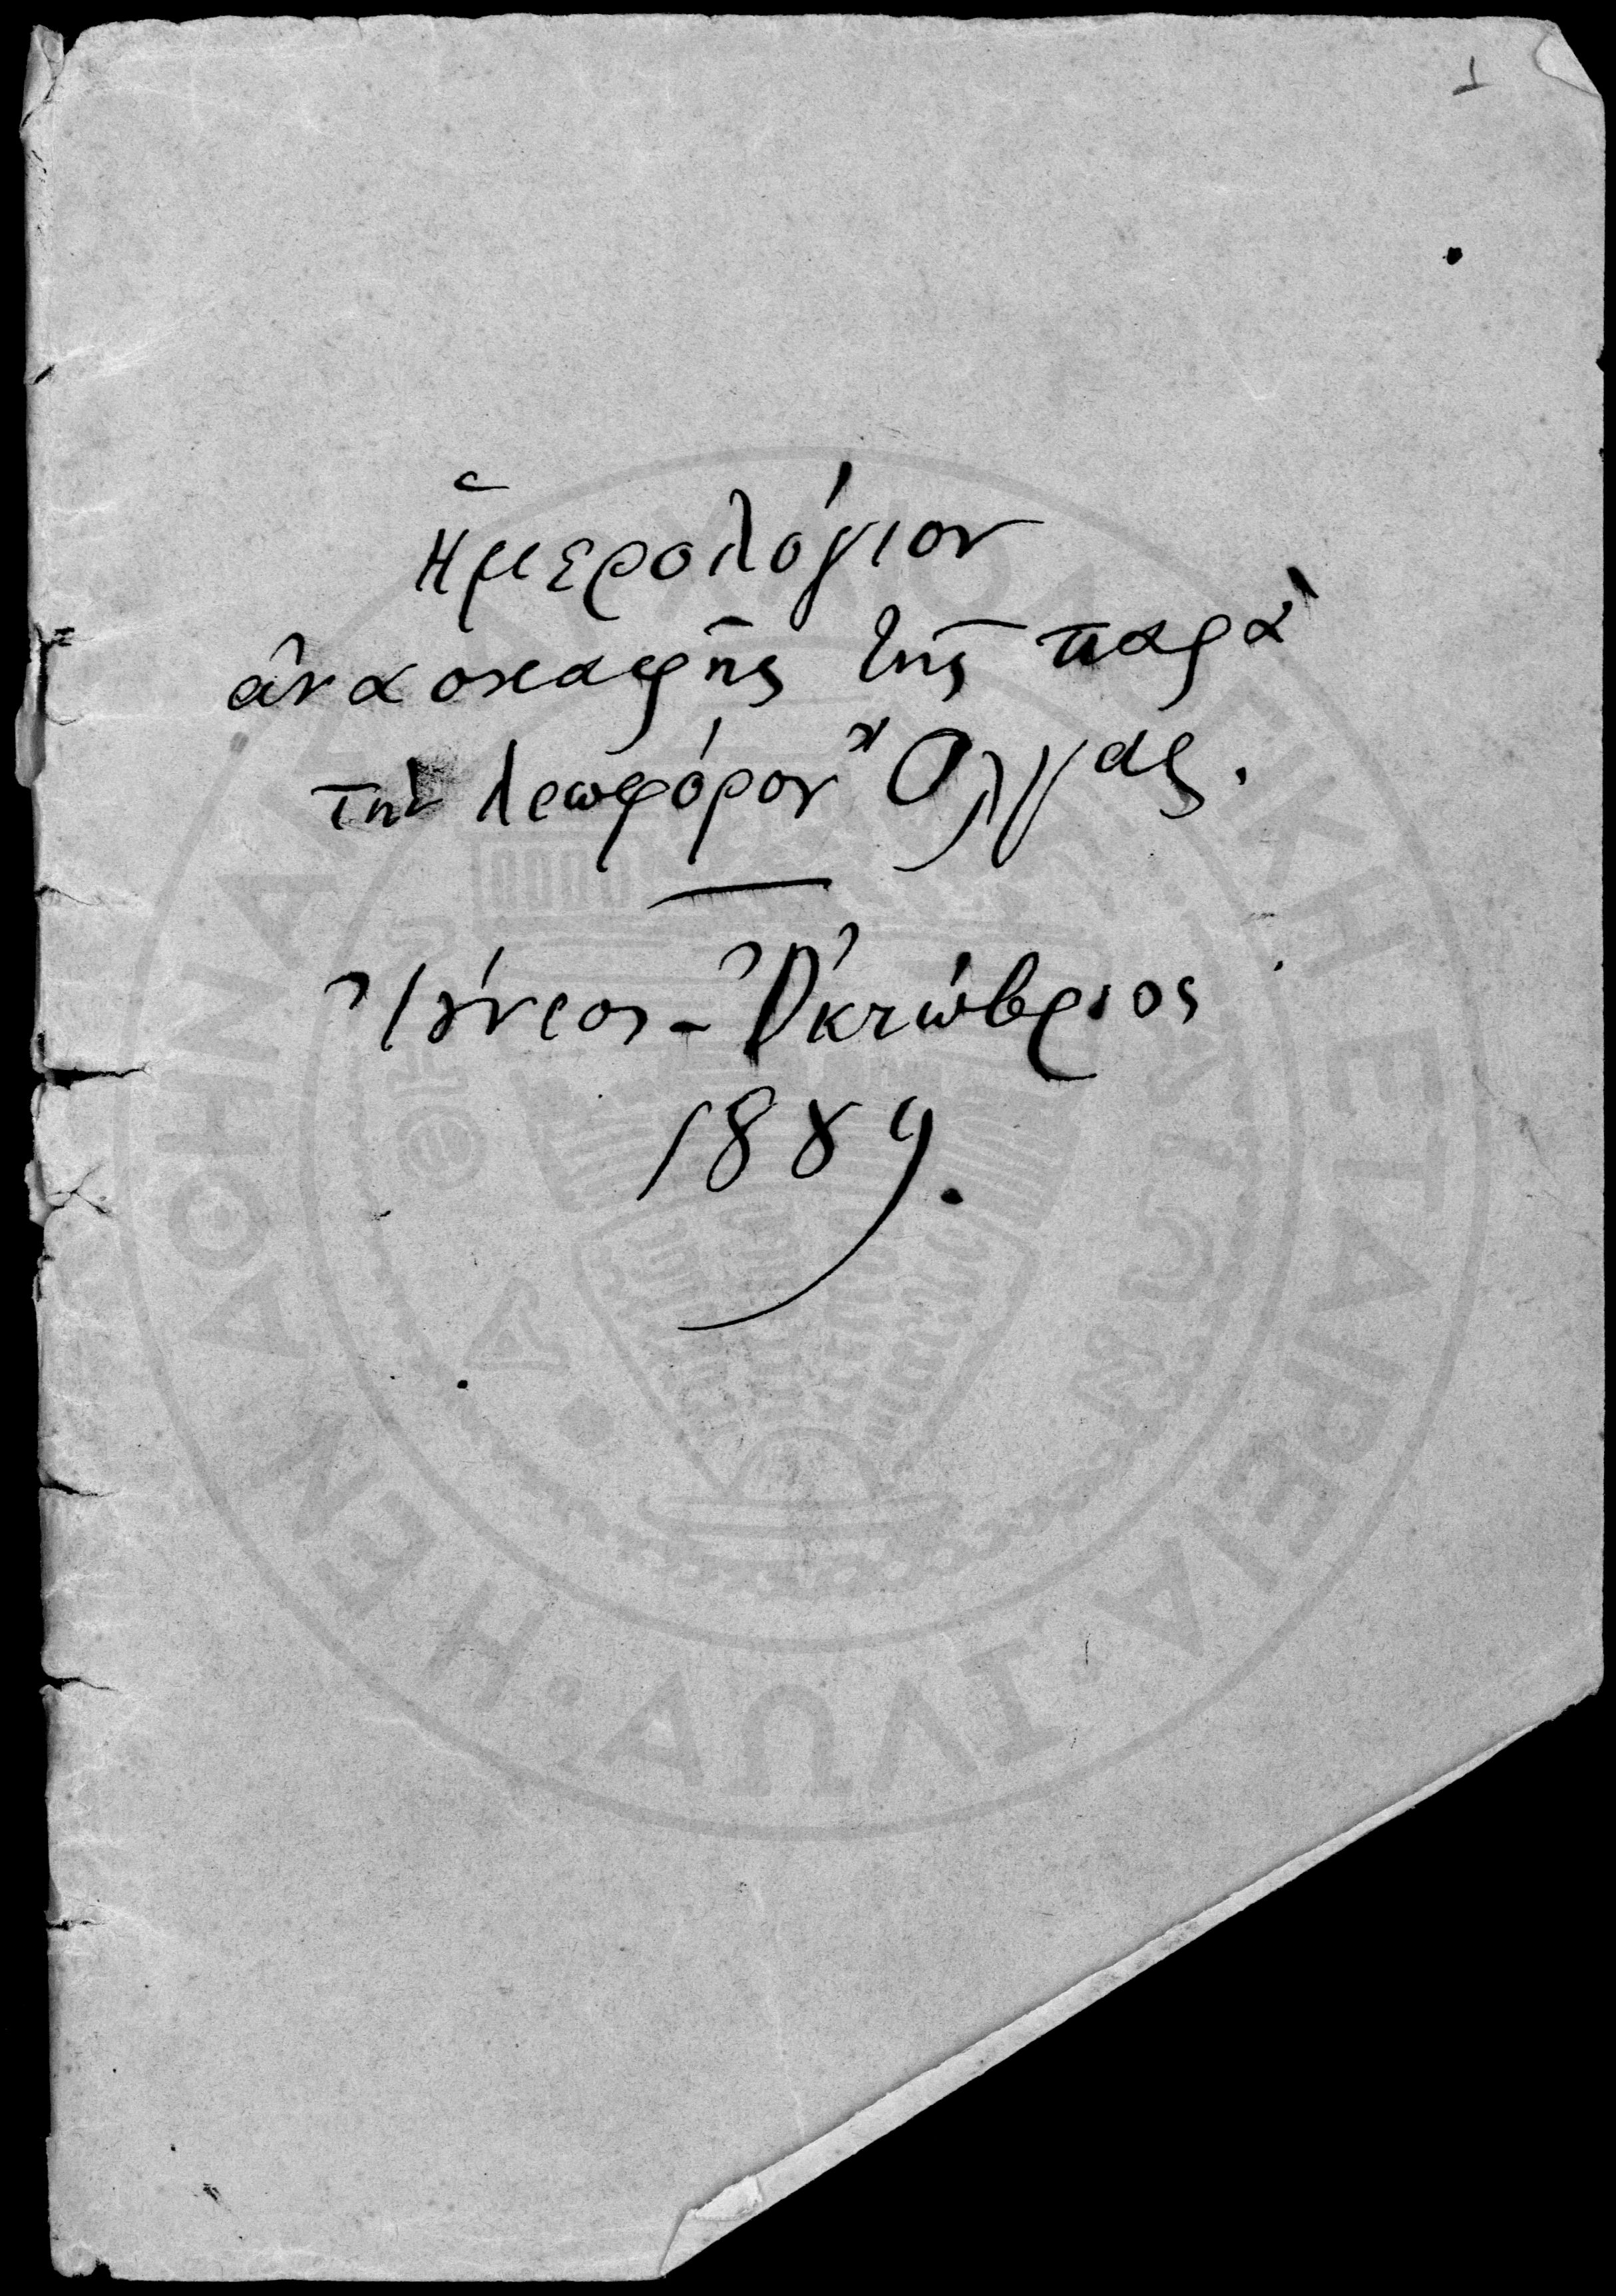 1
Ἡμερολόγιον
ἀνασκαφῆς τῆς παρὰ
τὴν λεωφόρον Ὄλγας.
Ἰούνιος - Ὀκτώβριος
1889.
Η ΕΝ ΑΘΗΝΑΙΣ ΑΡΧΑΙΟΛΟΓΙΚΗ ΕΤΑΙΡΕΙΑ · ΑΩΛΖ ·